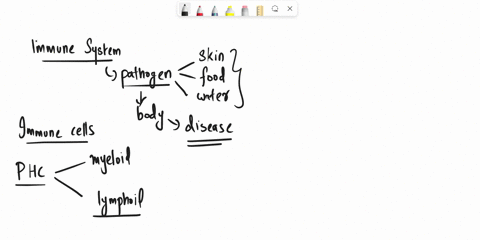 Immune System
pathogen
skin
food
water
body
disease
Immune cells
PHC
myeloid
lymphoil